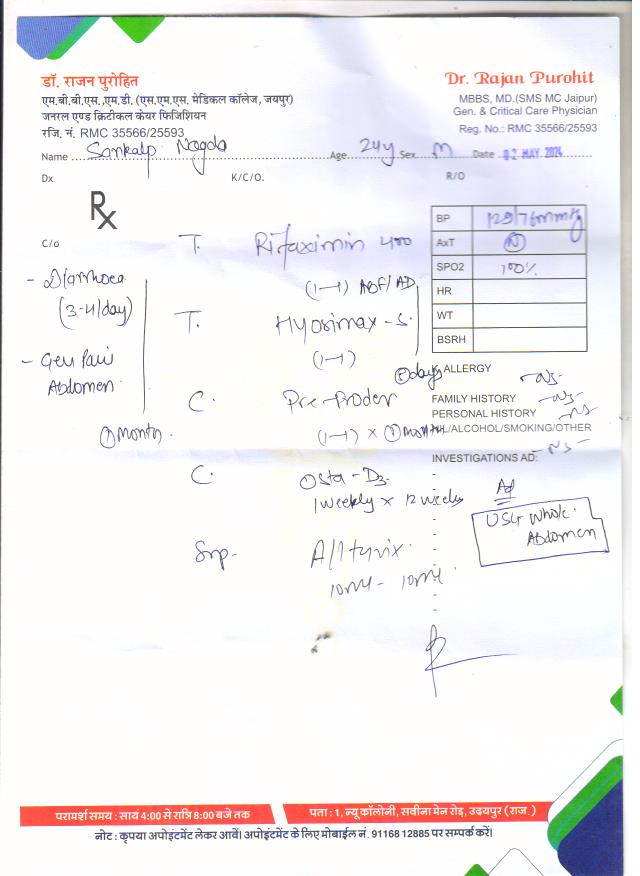 डॉ. राजन पुरोहित
एम.बी.बी.एस.,एम.डी. (एस.एम.एस. मेडिकल कॉलेज, जयपुर)
जनरल एण्ड क्रिटीकल केयर फिजिशियन
रजि. नं. RMC 35566/25593
Dr. Rajan Purohit
MBBS, MD.(SMS MC Jaipur)
Gen. & Critical Care Physician
Reg. No.: RMC 35566/25593
Name Sankalp Nagda Age 24y Sex M Date 02 MAY 2024
Dx K/C/O. R/O
Rx
BP 129/76mmHg
AxT N
SPO2 100%
HR
WT
BSRH
C/o
- Diarrhoea
(3-4/day)
Abdomen
1 month
T. Rifaximin 400
(1-1)
T. Hyosimax-S
(1-1)
days
C.
(1-1) x 1 month
C. Osta-D3
1 weekly x 12 weeks
Syp.
10ml - 10ml
ALLERGY -NS-
FAMILY HISTORY -NS-
PERSONAL HISTORY -NS-
/ALCOHOL/SMOKING/OTHER
INVESTIGATIONS AD: -NS-
Ad
USG Whole
Abdomen
परामर्श समय : सायं 4:00 से रात्रि 8:00 बजे तक
पता : 1, न्यू कॉलोनी, सवीना मेन रोड़, उदयपुर (राज.)
नोट : कृपया अपोइंटमेंट लेकर आवें। अपोइंटमेंट के लिए मोबाईल नं. 91168 12885 पर सम्पर्क करें।